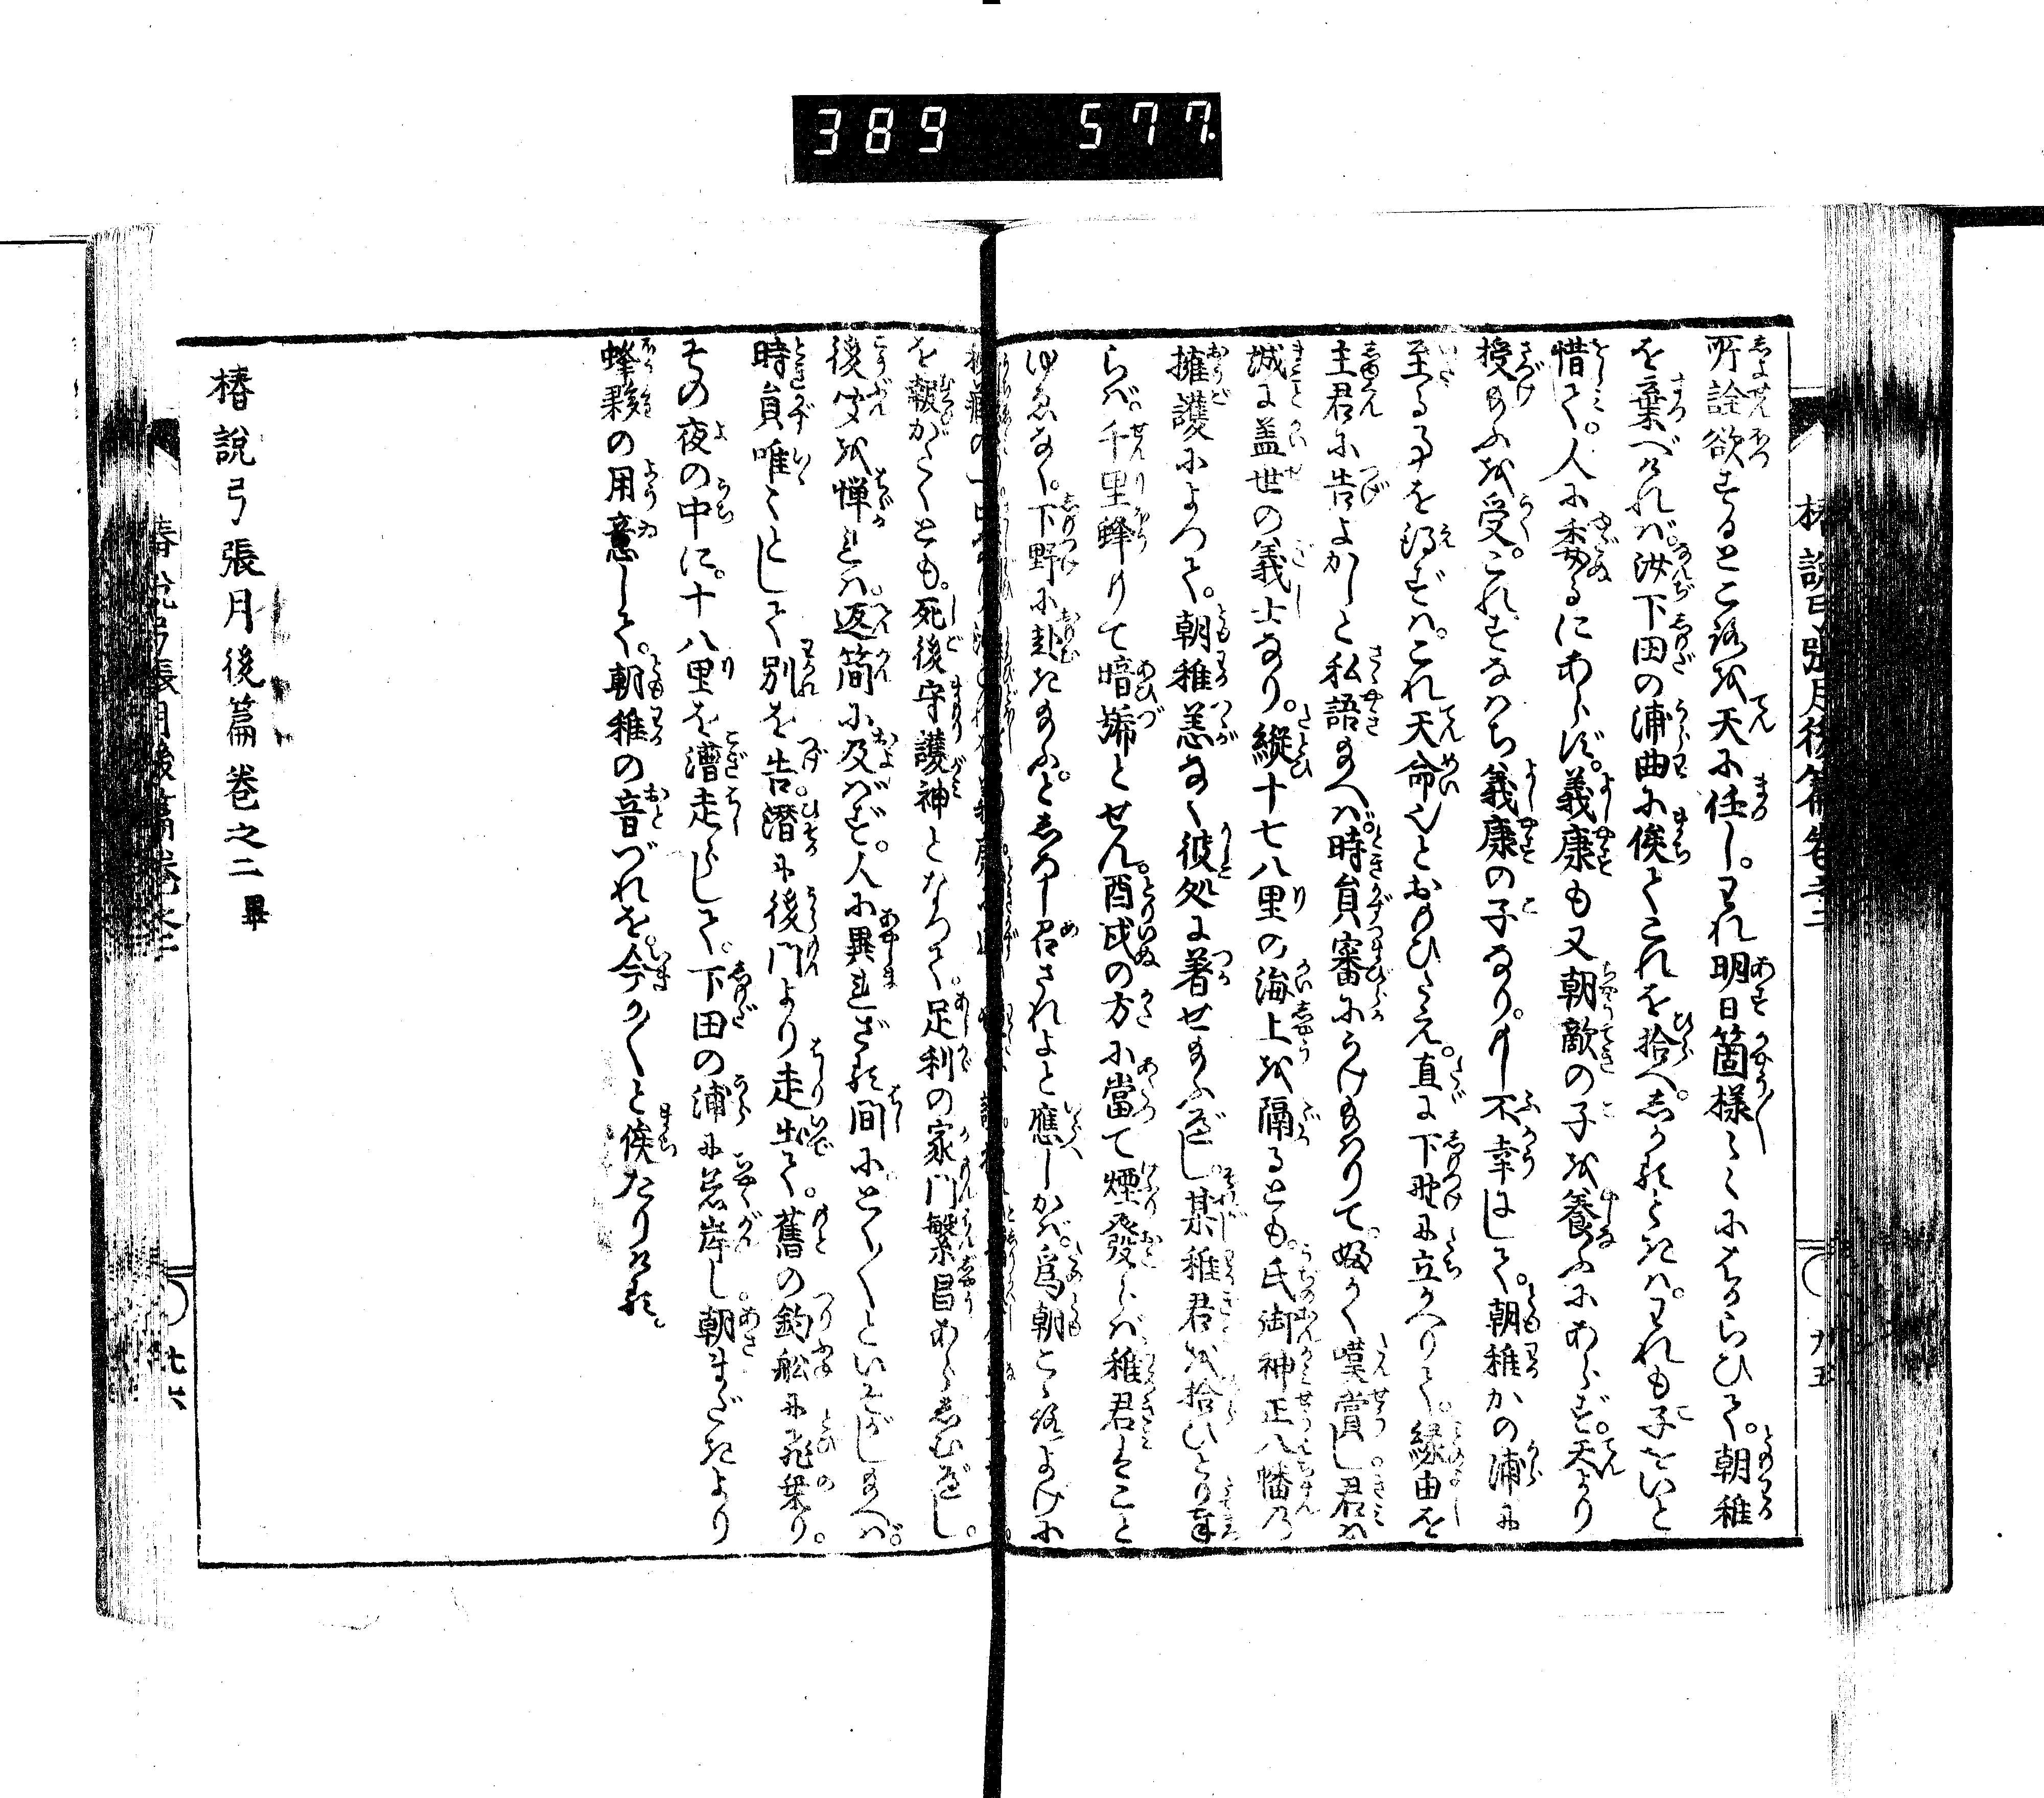 389 577
椿説弓張月後篇巻之二
所詮欲するところは天に任し。われ明日箇様々々にはからひて。朝稚
を棄べければ。汝下田の浦曲に俟てこれを拾へ。しかるときは。われも子をいと
惜て。人に委るにあらず。義康も又朝敵の子を養ふにあらず。天より
授給ふを受。これすなはち義康の子なり。もし不幸にして。朝稚かの浦に
至る事を得ずは。これ天命也とおもひたえ。直に下野に立かへりて。縁由を
主君に告よかしと私語給へば。時員審にうけ給はりて。ふかく嘆賞し。君は
誠に蓋世の義士なり。縦十七八里の海上を隔るとも。氏御神正八幡乃
擁護によつて。朝稚恙なく彼処に著せ給ふべし。某稚君を拾ひとり奉
らば。千里烽りて暗号とせん。酉戌の方に當て煙發らば。稚君はこと
ゆゑなく。下野に赴き給ふとしろし召されよと應しかば。爲朝こゝろよげに
を報がたくとも。死後守護神となつて。足利の家門繁昌あらしむべし。
後聞を憚れば。返簡に及ばず。人に異まれざる間にとく〳〵といそがし給へば。
時員唯々として別を告。潜に後門より走出て。舊の釣舩に飛乗り。
その夜の中に。十八里を漕走らして。下田の浦に着岸し。朝まだきより
烽の用意して。朝稚の音づれを。今か〳〵と俟たりける。
椿説弓張月後篇巻之二畢